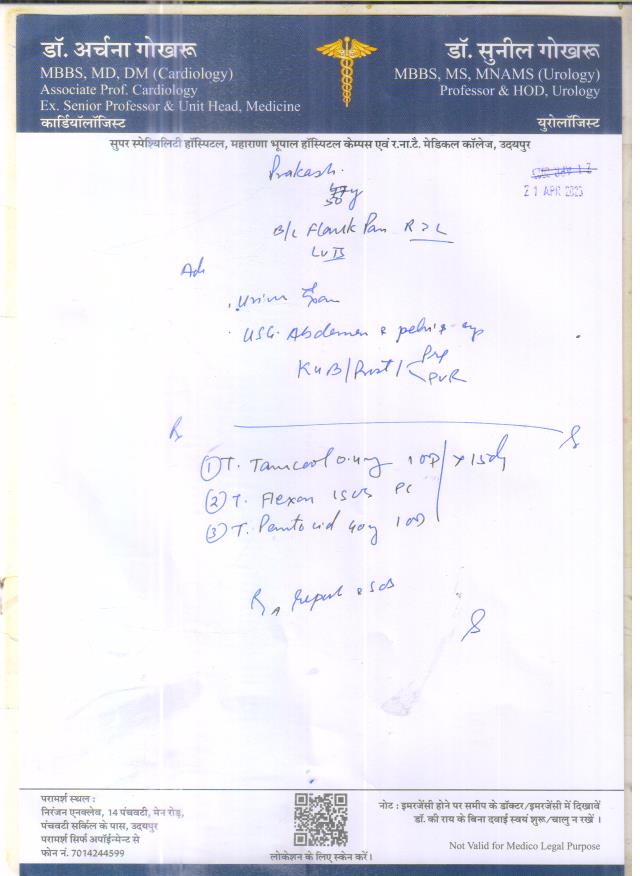 डॉ. अर्चना गोखरू
MBBS, MD, DM (Cardiology)
Associate Prof. Cardiology
Ex. Senior Professor & Unit Head, Medicine
कार्डियोलॉजिस्ट
डॉ. सुनील गोखरू
MBBS, MS, MNAMS (Urology)
Professor & HOD, Urology
युरोलॉजिस्ट
सुपर स्पेश्यिलिटी हॉस्पिटल, महाराणा भूपाल हॉस्पिटल केम्पस एवं र.ना.टै. मेडिकल कॉलेज, उदयपुर
Prakash
21 APR 2023
B/L Flank Pain R > L
LUTS
Adv
USG Abdomen & pelvis
KUB/Prost/ Pre
PVR
Rx
① T. 0.4mg 1OD x 15d
② T. Flexon 1SOS PC
③ T. Pantocid 40mg 1OD
R report & SOS
परामर्श स्थल :
निरंजन एनक्लेव, 14 पंचवटी, मेन रोड़,
पंचवटी सर्किल के पास, उदयपुर
परामर्श सिर्फ अपॉईन्मेन्ट से
फोन नं. 7014244599
लोकेशन के लिए स्केन करें।
नोट : इमरजेंसी होने पर समीप के डॉक्टर/इमरजेंसी में दिखावें
डॉ. की राय के बिना दवाई स्वयं शुरू/चालु न रखें ।
Not Valid for Medico Legal Purpose